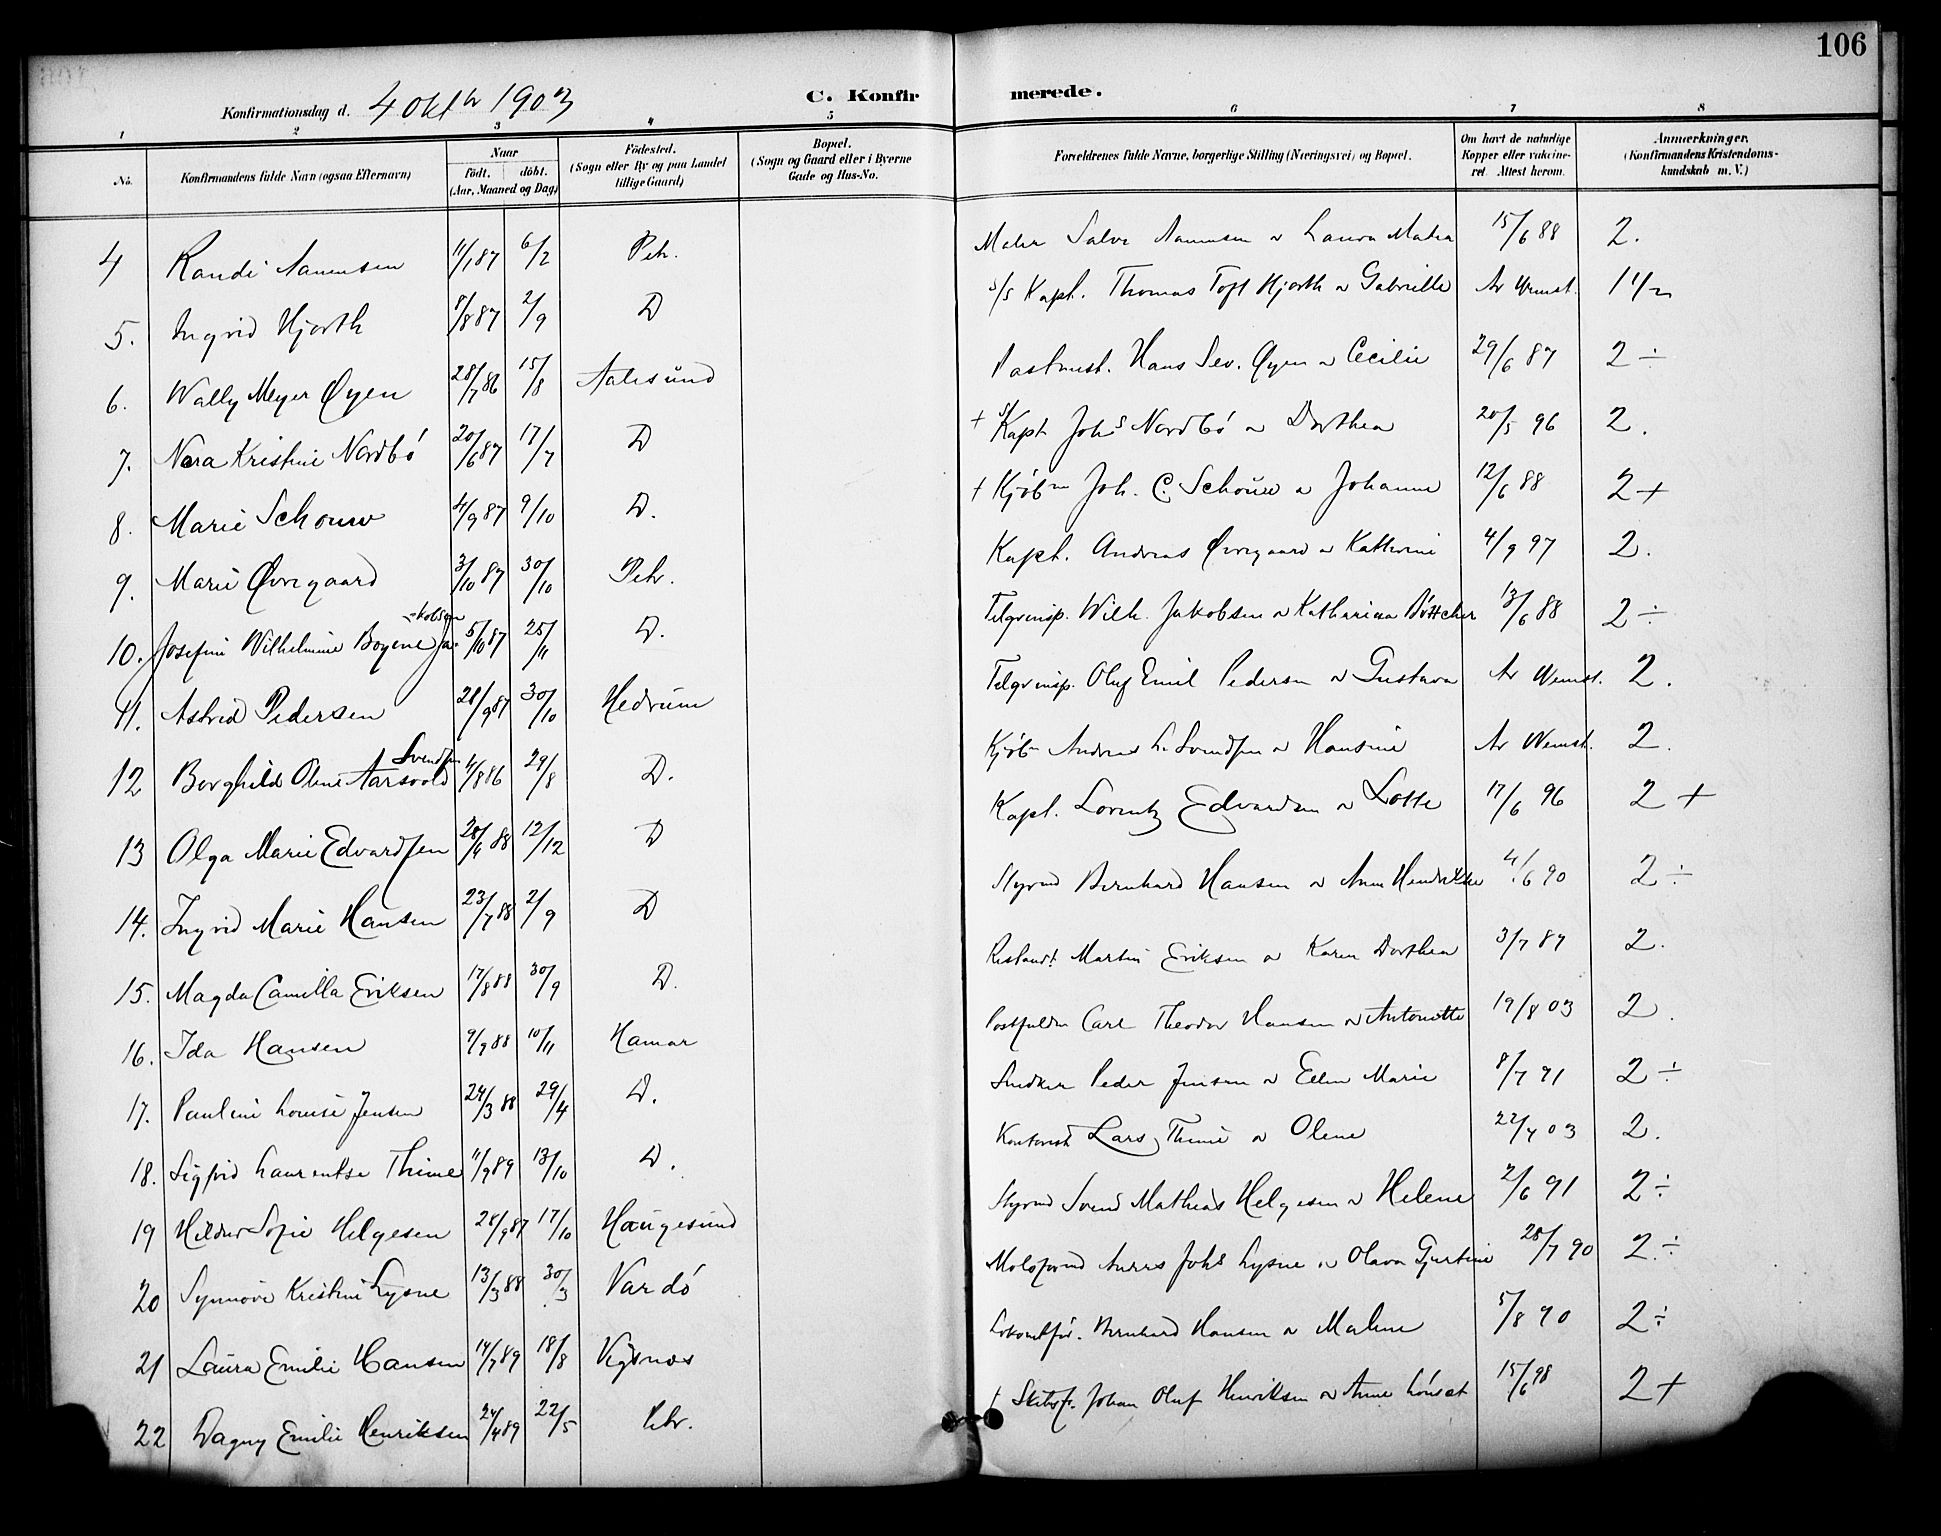 106
Konfirmationsdag d. 4 Oktbr 1903 C. Konfirmerede.
1 2 3 4 5 6 7 8
No. Konfirmandens fulde Navn (ogsaa Efternavn) Naar födt. döbt. (Aar, Maaned og Dag) Födested. (Sogn eller By og paa Landet tillige Gaard) Bopæl. (Sogn og Gaard eller i Byerne Gade og Hus-No. Forældrenes fulde Navne, borgerlige Stilling (Næringsvei) og Bopæl. Om havt de naturlige Kopper eller vaccineret. Attest herom. Anmærkninger. (Konfirmandens Kristendomskundskab m. V.)
4 Randi Aanensen 11/1 87 6/2 Petr. Maler Salve Aanensen o Laura Matea 15/6 88 2.
5. Ingrid Hjorth 8/8 87 2/9 D s/s Kapt. Thomas Toft Hjorth o Gabrielle Ar Wemst. 1 1/2
6. Wally Meyer Øyen 28/7 86 15/8 Aalesund Hans Sev. Øyen o Cecilie 29/6 87 2 ÷
7. Nora Kristine Nordbó 20/6 87 17/7 D + s/ Kapt Johs Nordbó o Dorthea 20/5 96 2.
8. Marie Schouw 4/9 87 9/10 D. + Kjöbm Joh. C. Schouw o Johanne 12/6 88 2 +
9. Marie Øvregaard 3/10 87 30/10 Petr. Kapt. Andreas Øvregaard o Kathrine 4/9 97 2.
10. Josefine Wilhelmine Boyene Ja-
=kobsen 5/10 87 25/11 D. Telgrinsp. Wilh. Jakobsen o Katharina Böttcher 13/6 88 2 ÷
11. Astrid Pedersen 28/9 87 30/10 Hedrum Telgrinsp. Oluf Emil Pedersen o Gustava Ar Wemst. 2.
12 Borghild Oline Aarsvold Svendsen 4/8 86 29/8 D. Kjöbm Andreas L. Svendsen o Hansine Ar Wemst. 2.
13 Olga Marie Edvardsen 28/4 88 12/12 D Kapt. Lorentz Edvardsen o Lotte 17/6 96 2 +
14. Ingrid Marie Hansen 23/7 88 2/9 D Styrmd Bernhard Hansen o Anne Hendrikke 4/6 90 2 ÷
15. Magda Camilla Eriksen 17/8 88 30/9 D. Martin Eriksen o Karen Dorthea 3/7 89 2.
16. Ida Hansen 9/9 88 10/11 Hamar Postfuldm Carl Theodor Hansen o Antonette 19/8 03 2.
17. Pauline Louise Jensen 24/3 88 29/4 D. Snedker Peder Jensen o Ellen Marie 8/7 91 2 ÷
18. Sigfrid Laurentse Thime 11/9 89 13/10 D. Kontorist Lars Thime o Olene 22/7 03 2.
19 Hildur Sofie Helgesen 28/9 87 17/10 Haugesund Styrmd Svend Mathias Helgesen o Helene 2/6 91 2 ÷
20 Synnöve Kristine Lysne 13/3 88 30/3 Vardö Johs Lysne o Olava Gjertine 28/7 90 2 ÷
21 Laura Emilie Hansen 14/7 89 18/8 Vigsnes Bernhard Hansen o Malene 5/8 90 2 ÷
22 Dagny Emilie Henriksen 24/4 89 22/5 Petr. + Johan Oluf Henriksen o Anne 15/6 98 2 +